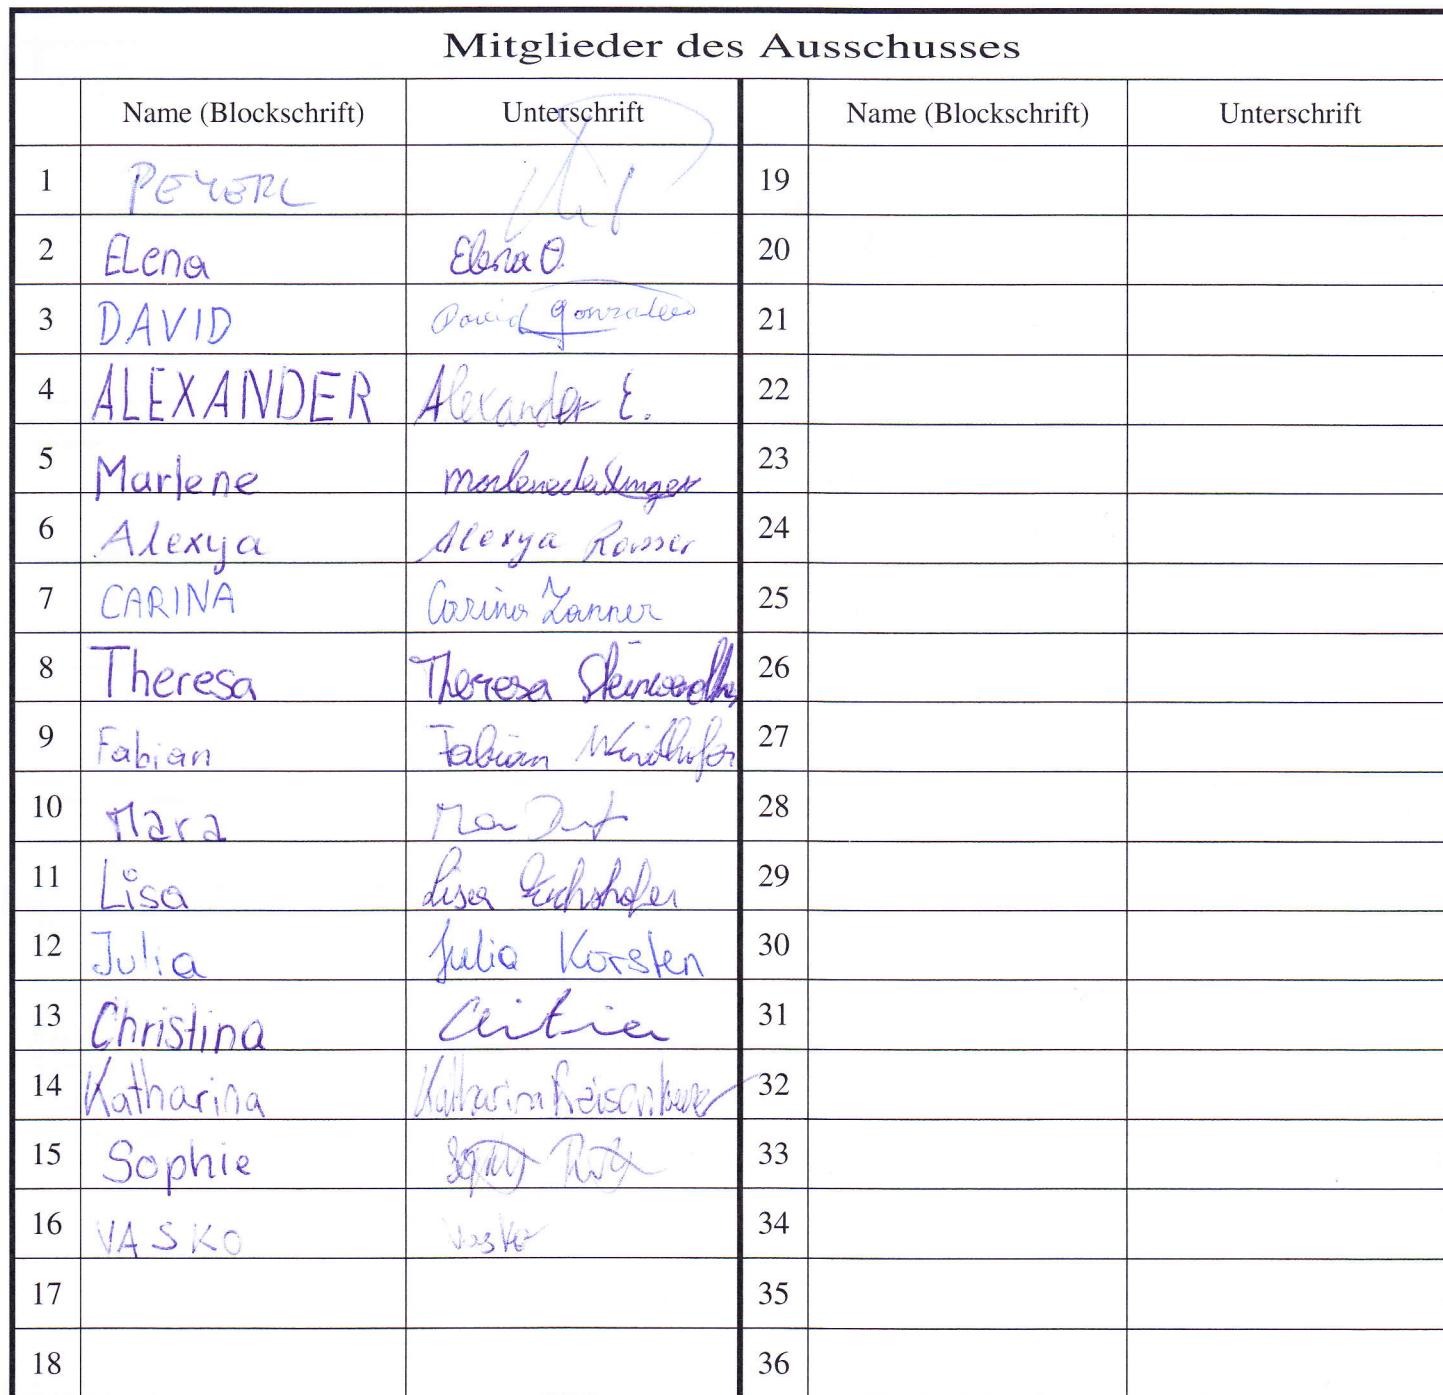 Mitglieder des Ausschusses
Name (Blockschrift) Unterschrift Name (Blockschrift) Unterschrift
1 PEYERL 19
2 Elena Elena O. 20
3 DAVID David Gonzalez 21
4 ALEXANDER Alexander E. 22
5 Marlene Marlene 23
6 Alexya Alexya 24
7 CARINA Carina Zanner 25
8 Theresa Theresa 26
9 Fabian Fabian Windhofer 27
10 Mara 28
11 Lisa Lisa 29
12 Julia Julia Korsten 30
13 Christina 31
14 Katharina Katharina 32
15 Sophie 33
16 VASKO Vasko 34
17 35
18 36